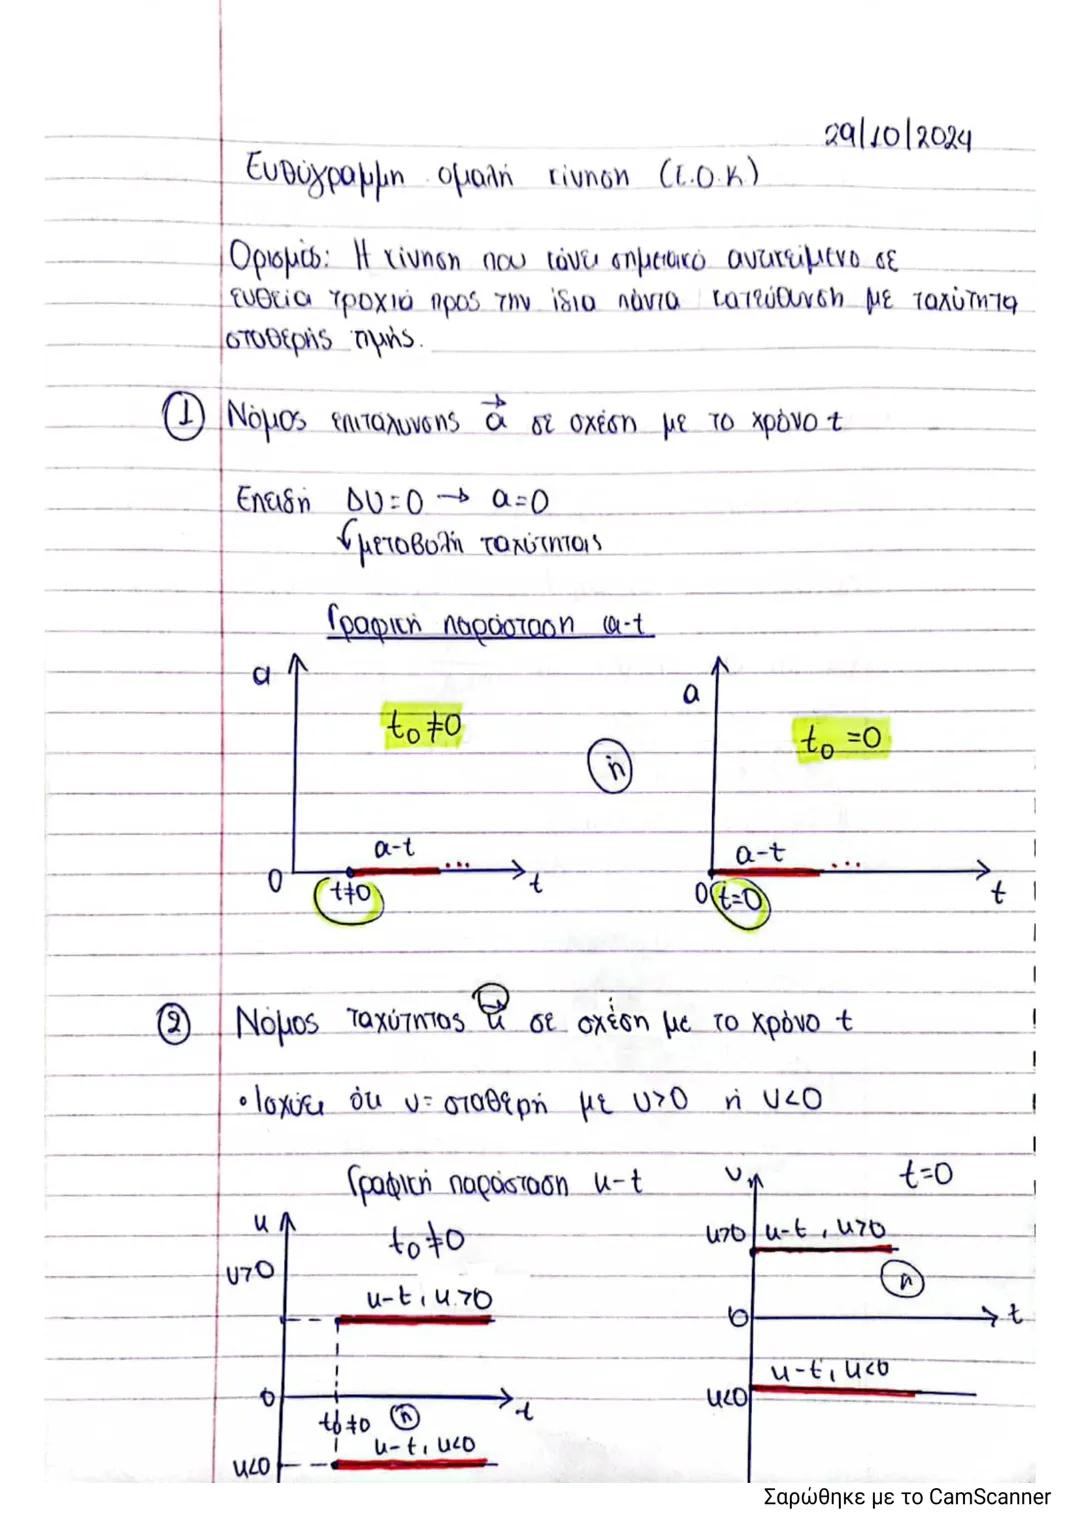 29/10/2024
Ευθύγραμμη ομαλή κίνηση (Ε.Ο.Κ)
Ορισμός: Η κίνηση που κάνει σημειακό αντικείμενο σε
ευθεία τροχιά προς την ίδια πάντα κατεύθυνση με ταχύτητα
σταθερής τιμής.
① Νόμος επιτάχυνσης a⃗ σε σχέση με το χρόνο t
Επειδή ΔU=0 → a=0
μεταβολή ταχύτητας
Γραφική παράσταση a-t
a t₀≠0 ή a t₀=0
a-t ... a-t ...
0 t≠0 t 0 t=0 t
② Νόμος ταχύτητας u⃗ σε σχέση με το χρόνο t
• Ισχύει ότι υ= σταθερή με U>0 ή U<0
Γραφική παράσταση u-t υ t=0
u t₀≠0 u>0 u-t, u>0
U>0 ή
u-t, u>0 0 t
0 t₀≠0 ή t u<0 u-t, u<0
u<0 u-t, u<0
Σαρώθηκε με το CamScanner